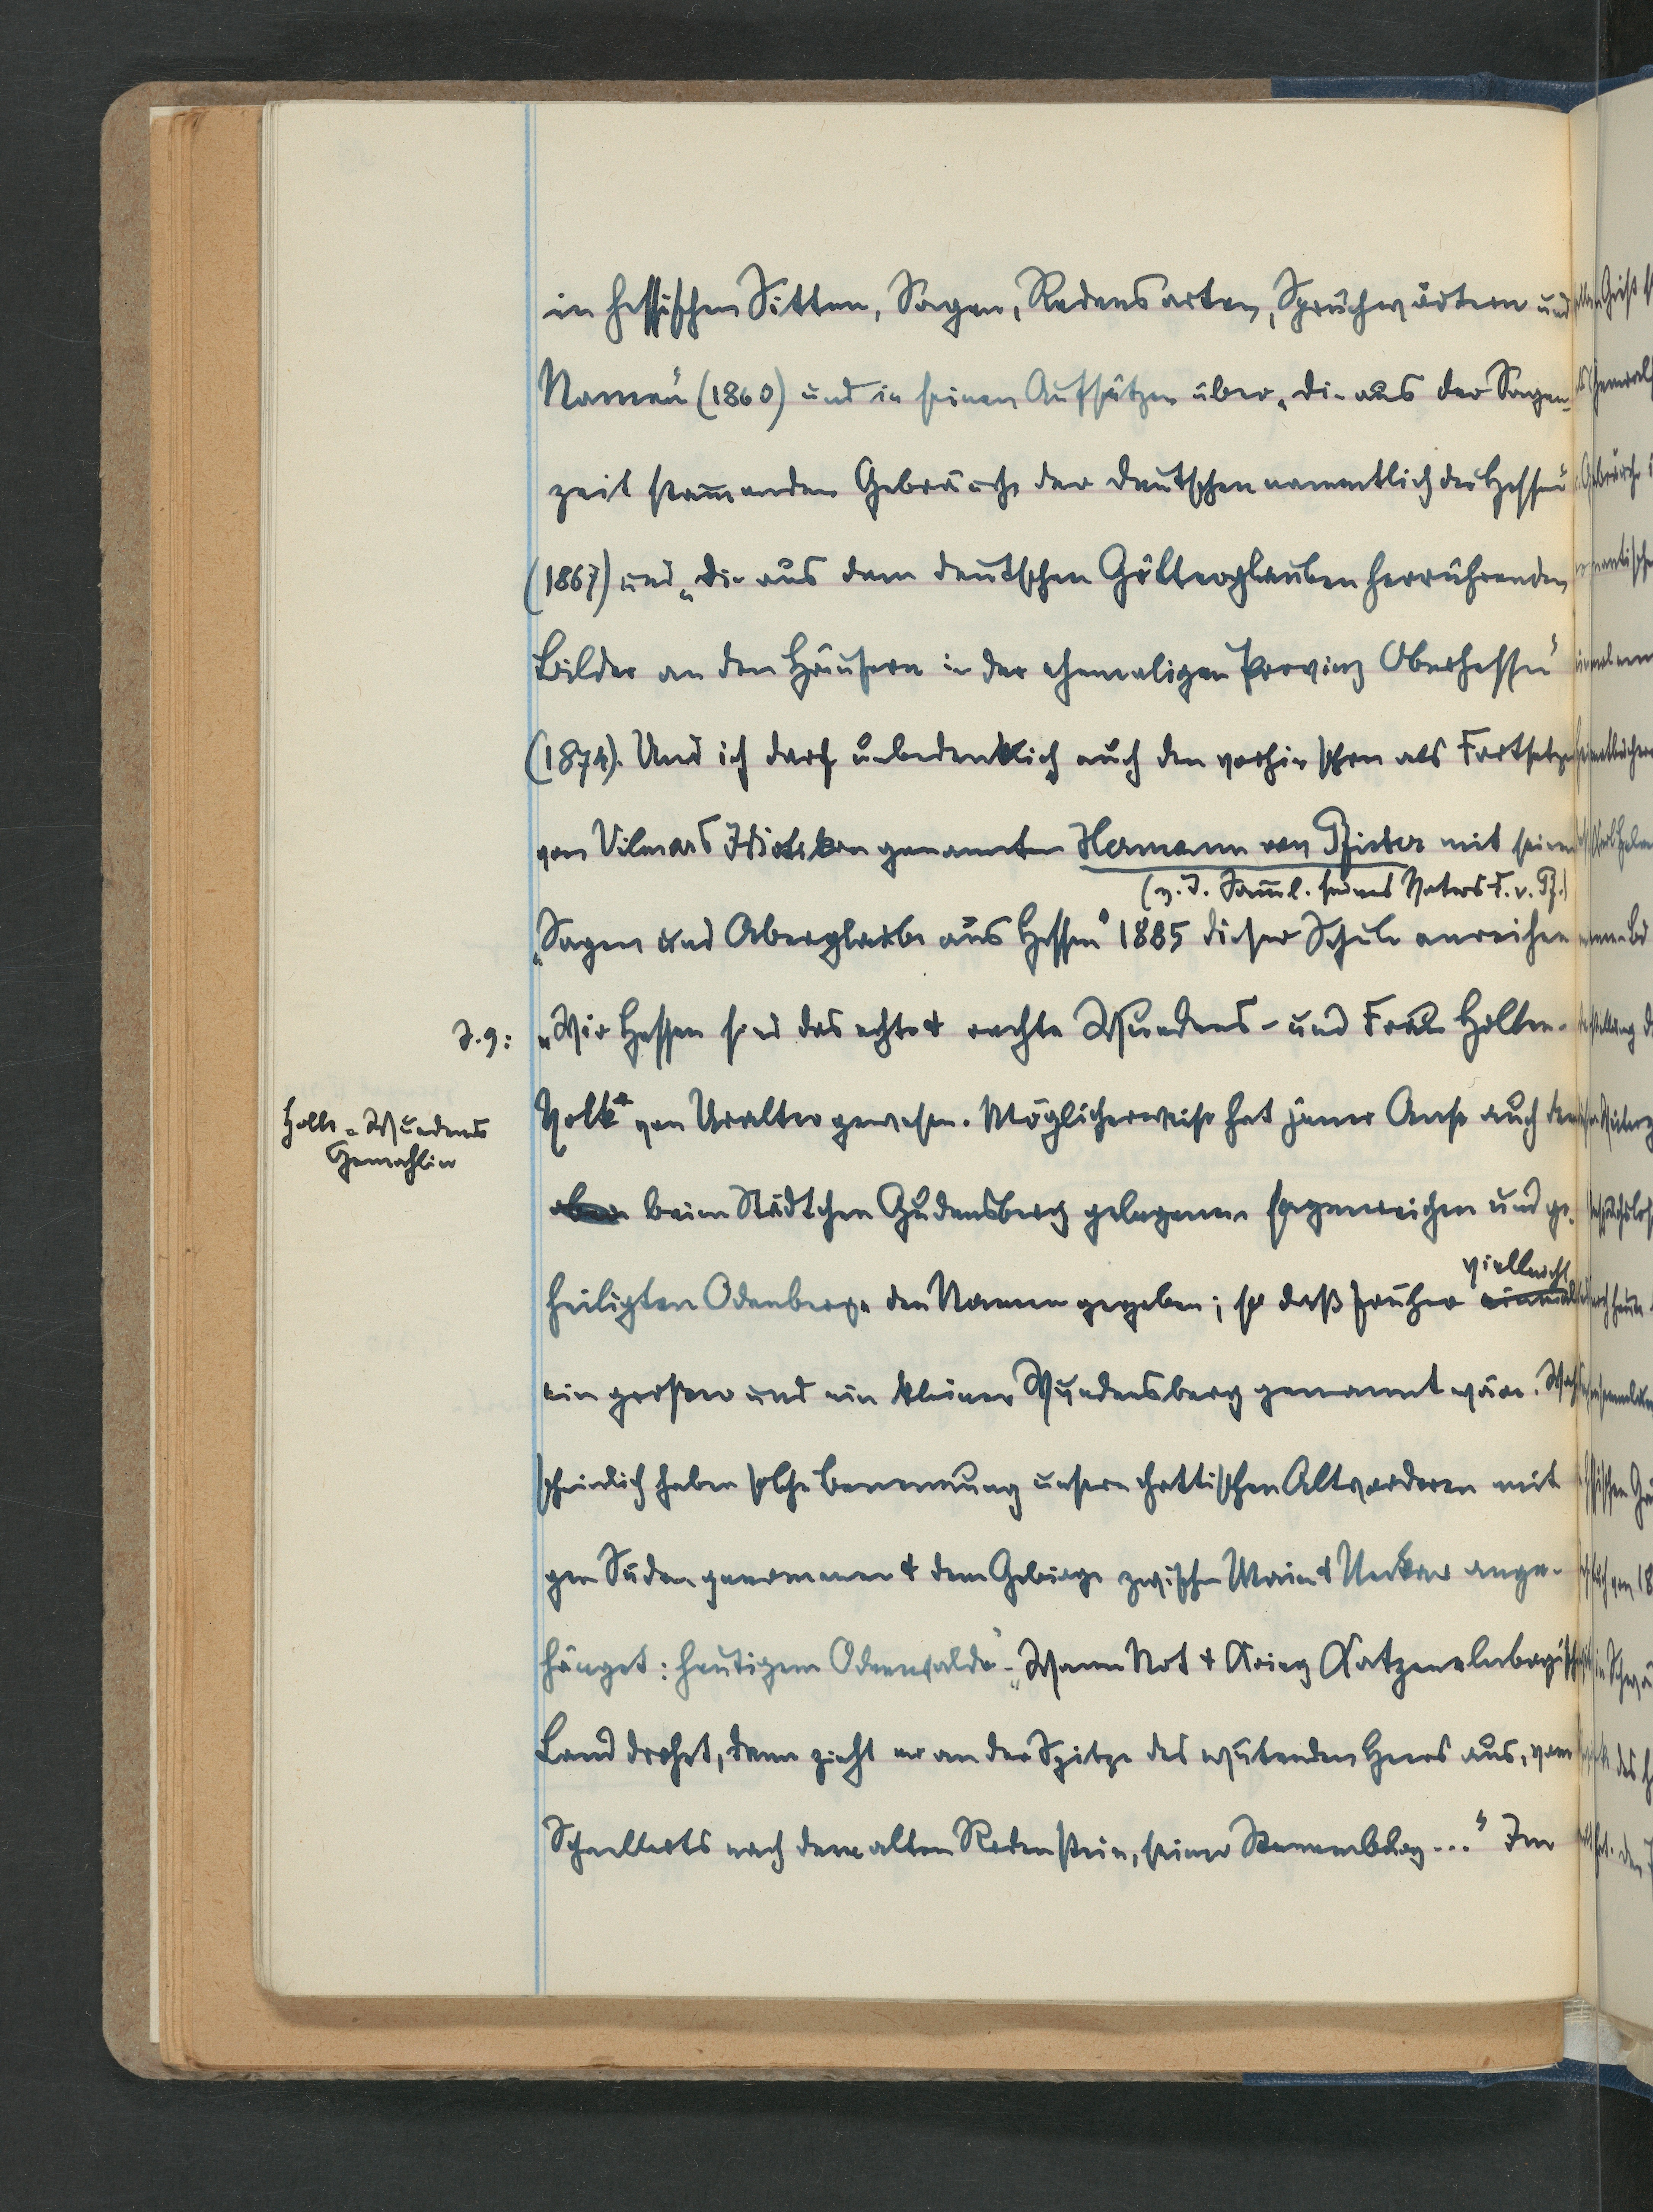 in hessischen Sitten, Sagen, Redensarten, Sprüchwörtern und
Namen" (1860) und in seinen Aufsätzen über „die aus der Sagen-
zeit stam̅enden Gebräuche der Deutschen namentlich der Hessen"
(1867) und „die aus dem deutschen Götterglauben herrührenden
Bilder an den Häusern in der ehemaligen Provinz Oberhessen"
(1874). Und ich darf unbedenklich auch den vorhin schon als Fortsetzer
von Vilmars Idiotikon genannten Hermann von Pfister mit seinen
(z. T. Sam̅l. seines Vaters F. v. Pf.)
„Sagen und Aberglaube aus Hessen" 1885 dieser Schule anreihen
S. 9: „Wir Hessen sind das echte & rechte Wuodens- und Frau Hollen-
Holle = Wuodens
Gemahlin
Volk* von Uralter gewesen. Möglicherweise hat jener Anse auch dem
aber beim Städtchen Gudensberg gelegenen sagenreichen und ge-
heiligten Odenberge den Namen gegeben; so daß früher einmal vielleicht
ein großer und ein kleiner Wuodensberg genannt wäre. Wahr
scheinlich haben solche Benennung unsere chattischen Altvorderen mit
gen Süden genommen & dem Gebirge zwischen Main & Neckar ange-
hänget: heutigem Odenwalde" - „Wann Not & Krieg Katzenelnbogisch
Land drohet, dann zieht er an der Spitze des wütenden Heeres aus, vom
Schnellerts nach dem alten Rodenstein, seiner Stammburg ..." Im